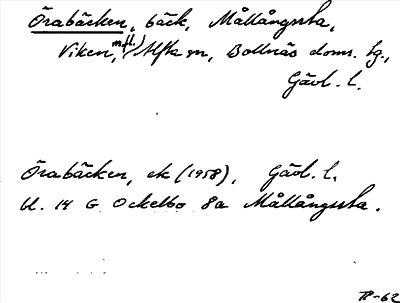 Örabäcken, bäck, Mållångssta,
Viken, m.fl.) Alfta sn, Bollnäs doms. tg.,
Gävl. l.
Örabäcken, ek (1958), Gävl. l.
bl. 14 G Ockelbo 8a Mållångssta.
TP-62